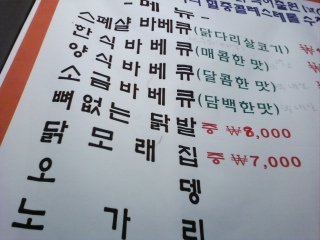 메 뉴
스페샬 바베큐 (닭다리살코기)
한 식 바 베 큐 (매콤한 맛)
양 식 바 베 큐 (달콤한 맛)
소 금 바 베 큐 (담백한맛)
뼈 없 는 닭 발 중 ₩8,000
닭 모 래 집 중 ₩7,000
오 뎅
노 가 리